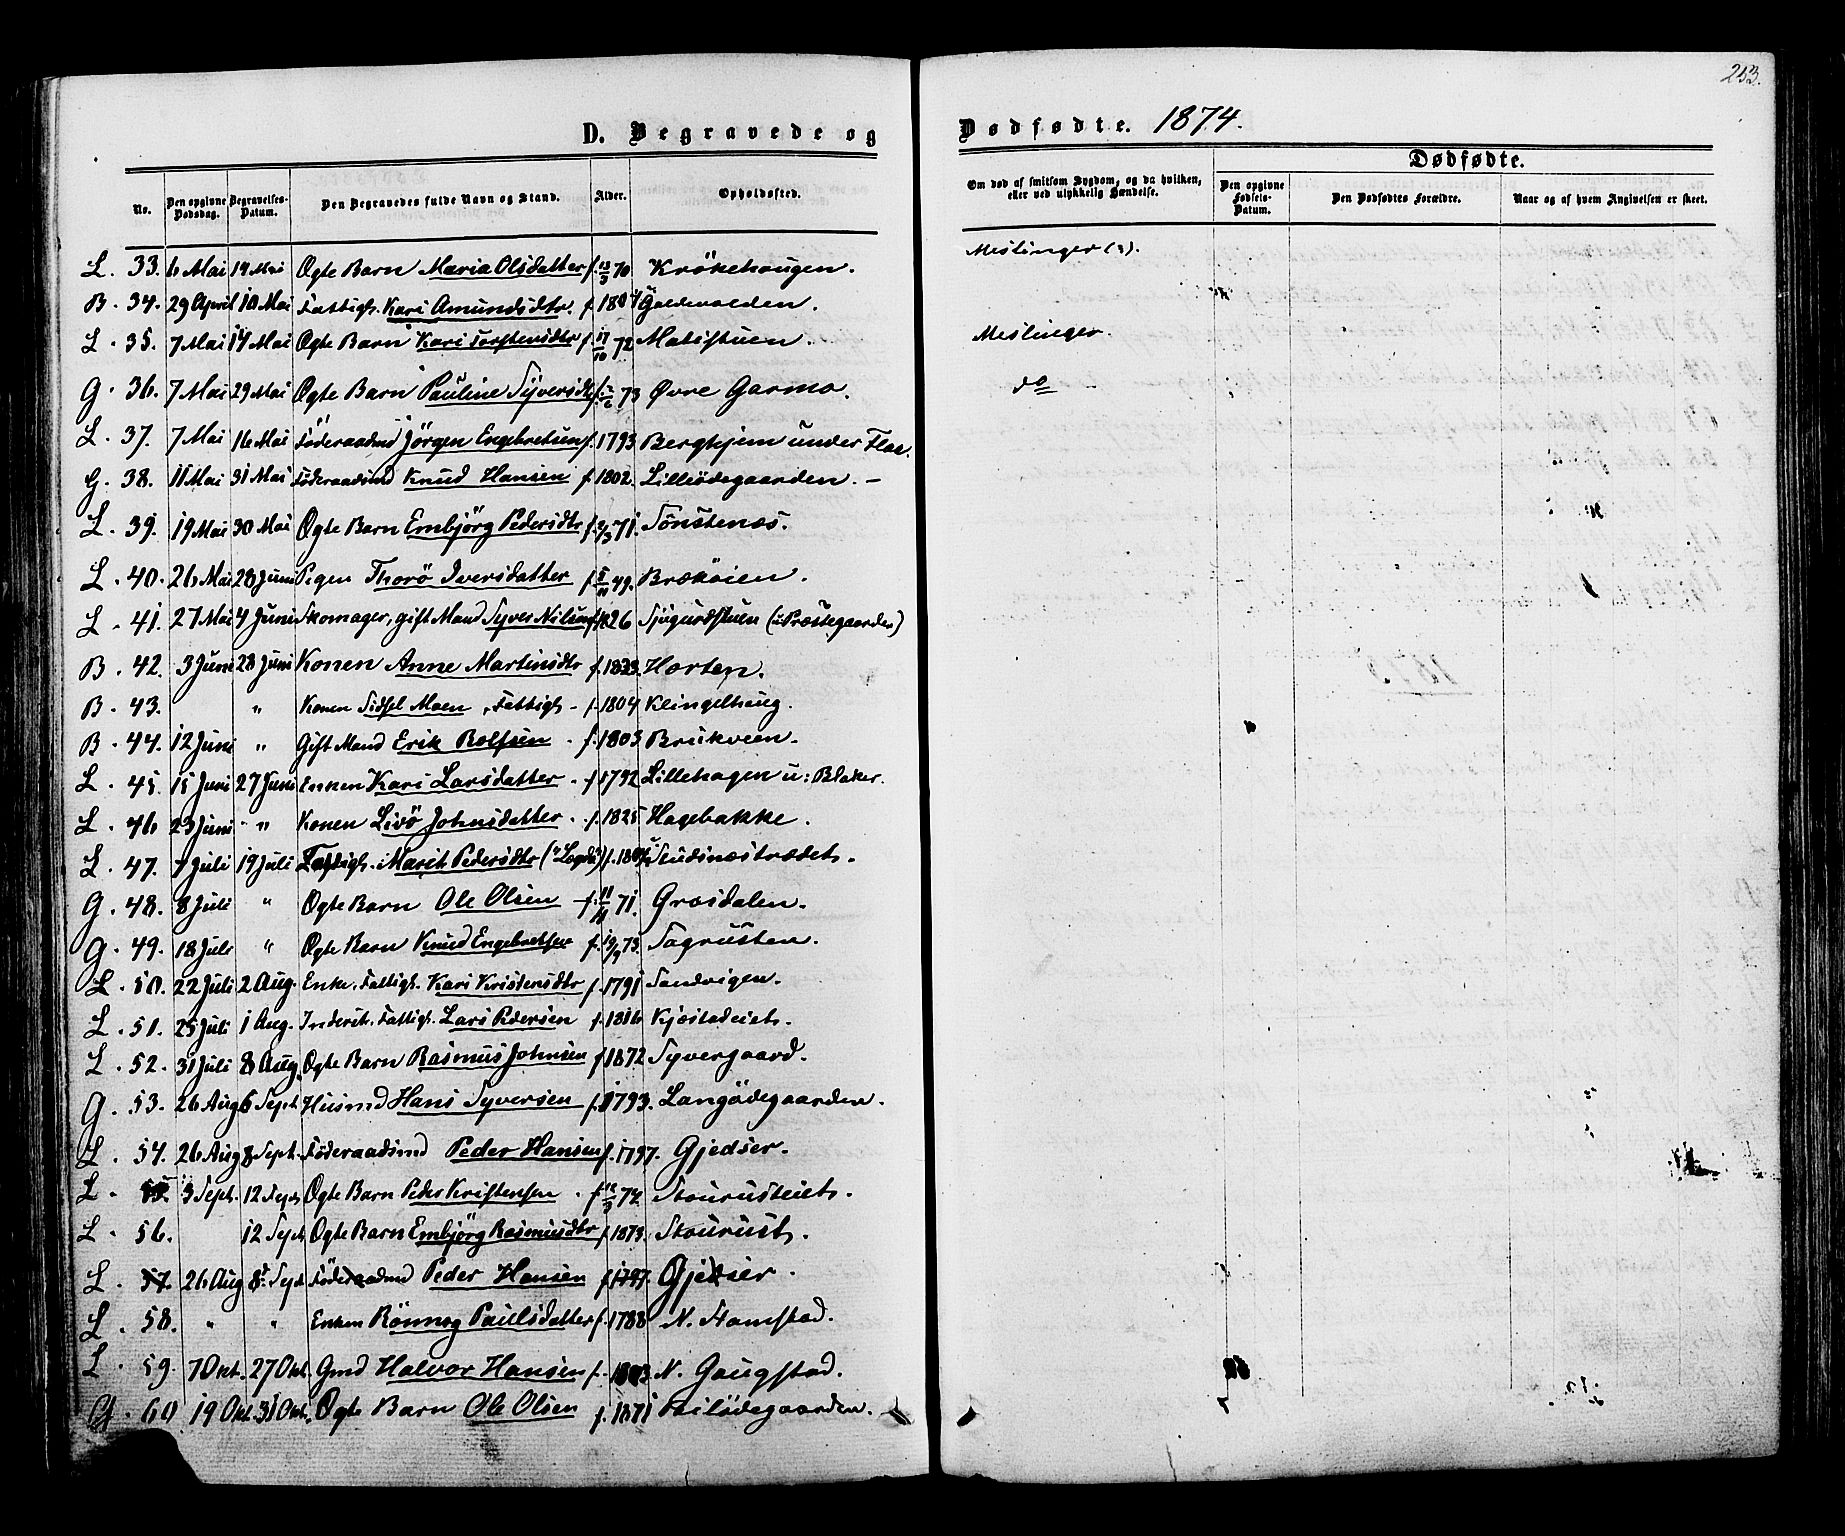 253.
D. Begravede og Dødfødte. 1874.
Dødfødte.
No. Den opgivne Dødsdag. Begravelses-Datum. Den Begravedes fulde Navn og Stand. Alder. Opholdssted. Om død af smitsom Sygdom, og da hvilken, eller ved ulykkelig Hændelse. Den opgivne Fødsels-Datum. Den Dødfødtes Forældre. Naar og af hvem Angivelsen er skeet.
L. 33. 6 Mai 14 Mai Ægte Barn Maria Olsdatter f. 13/3 70 Krökehaugen. Meslinger (?).
B. 34. 29 April 10 Mai Fattigl. Kari Amundsdtr. f. 1804 Galdevolden.
L. 35. 7 Mai 14 Mai Ægte Barn Kari Torstensdtr f. 17/10 72 Matistuen. Meslinger.
G. 36. 7 Mai 29 Mai Ægte Barn Pauline Syversdtr f. 2/6 73 Øvre Garmo. do
L. 37. 7 Mai 16 Mai Föderaadmd Jörgen Engebretsen f. 1793 Berghjem under Flaa.
G. 38. 11 Mai 31 Mai Föderaadsmd Knud Hansen f. 1802. Lilleödegaarden. -
L. 39. 19 Mai 30 Mai Ægte Barn Embjörg Pedersdtr f. 2/3 71. Tönstenæs.
L. 40. 26 Mai 28 Juni Pigen Thorö Iversdatter f. 49. Bræköien.
L. 41. 27 Mai 4 Juni Skomager, gift Mand Syver Nilsen f. 1826 Sjugurdstuen (u Præstegaarden)
B. 42. 3 Juni 28 Juni Konen Anne Martinsdtr f. 1833. Horten.
B. 43. " Konen Sidsel Moen, Fattigl - f. 1804 Klingelhaug.
B. 44. 12 Juni " Gift Mand Erik Rolfsen. f. 1803 Brukveien.
L. 45. 15 Juni 27 Juni Enken Kari Larsdatter. f 1792 Lillehagen u: Blaker.
L. 46. 23 Juni " Konen Livö Johnsdatter. f. 1825 Hagebakke.
L. 47. 7 Juli 19 Juli Fattigl. Marit Pedersdtr ("Lægdi") f. Sudsnæstrædet.
G. 48. 8 Juli " Ægte Barn Ole Olsen f. 71. Grosdalen.
G. 49. 18 Juli " Ægte Barn Knud Engebretsen f. 73. Sagrusten.
L. 50. 22 Juli 2 Aug. Enke, Fattigl. Kari Kristensdtr f. 1791 Sandvigen.
L. 51. 25 Juli 1 Aug. Inderst. Fattigl. Lars Pedersen f. 1816 Kjæstadeiet.
L. 52. 31 Juli 8 Aug. Ægte Barn Rasmus Johnsen f 1872 Syvergaard.
G. 53. 26 Aug 6 Sept. Husmd Hans Syversen f. 1793. Langödegaarden.
L. 54. 26 Aug 8 Sept. Föderaadsmd Peder Hansen f. 1797. Gjedser.
L. 55. 3 Sept. 12 Sept Ægte Barn Peder Kristensen. f. 12/3 74 Stourusteiet.
L. 56. 12 Sept Ægte Barn Embjörg Rasmusdtr f. 1873. Stourust.
L. 57. 26 Aug 8 Sept Föderaadmd Peder Hansen f 1797. Gjedser.
L. 58. " " Enken Rönnog Paulsdatter f. 1788 N. Stamstad.
L. 59. 7 Okt. 27 Okt. Gmd Halvor Hansen f. N. Gaugstad.
G. 60 19 Okt. 31 Okt. Ægte Barn Ole Olsen f. 1871 Pailödegaarden.